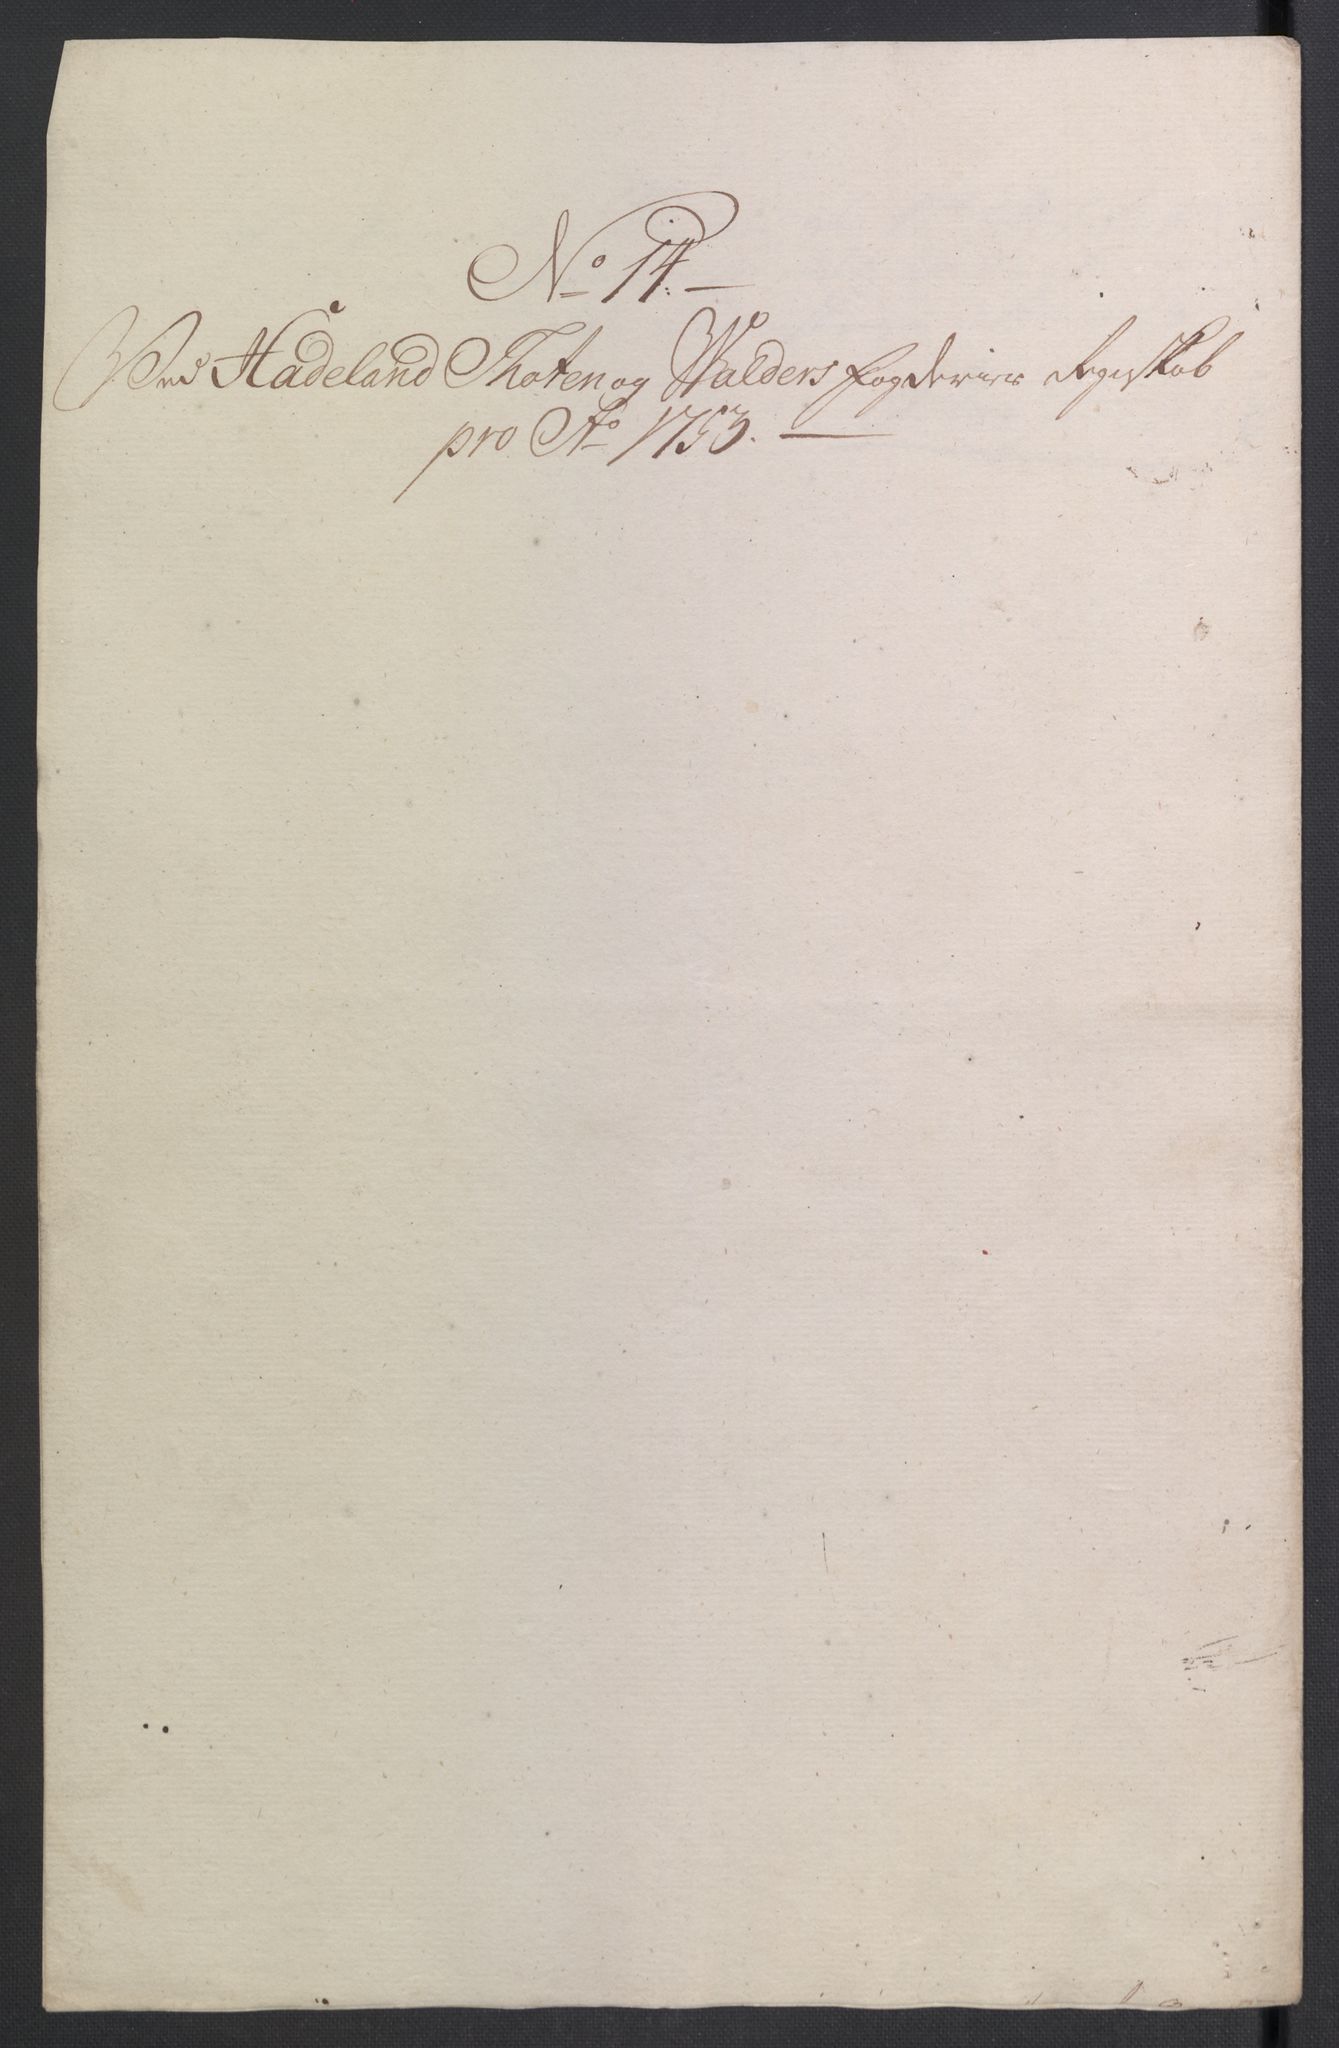 No 14.
Ved Hadeland Thoten og Walders Fogderiers Regnskab
pro Ao 1753.